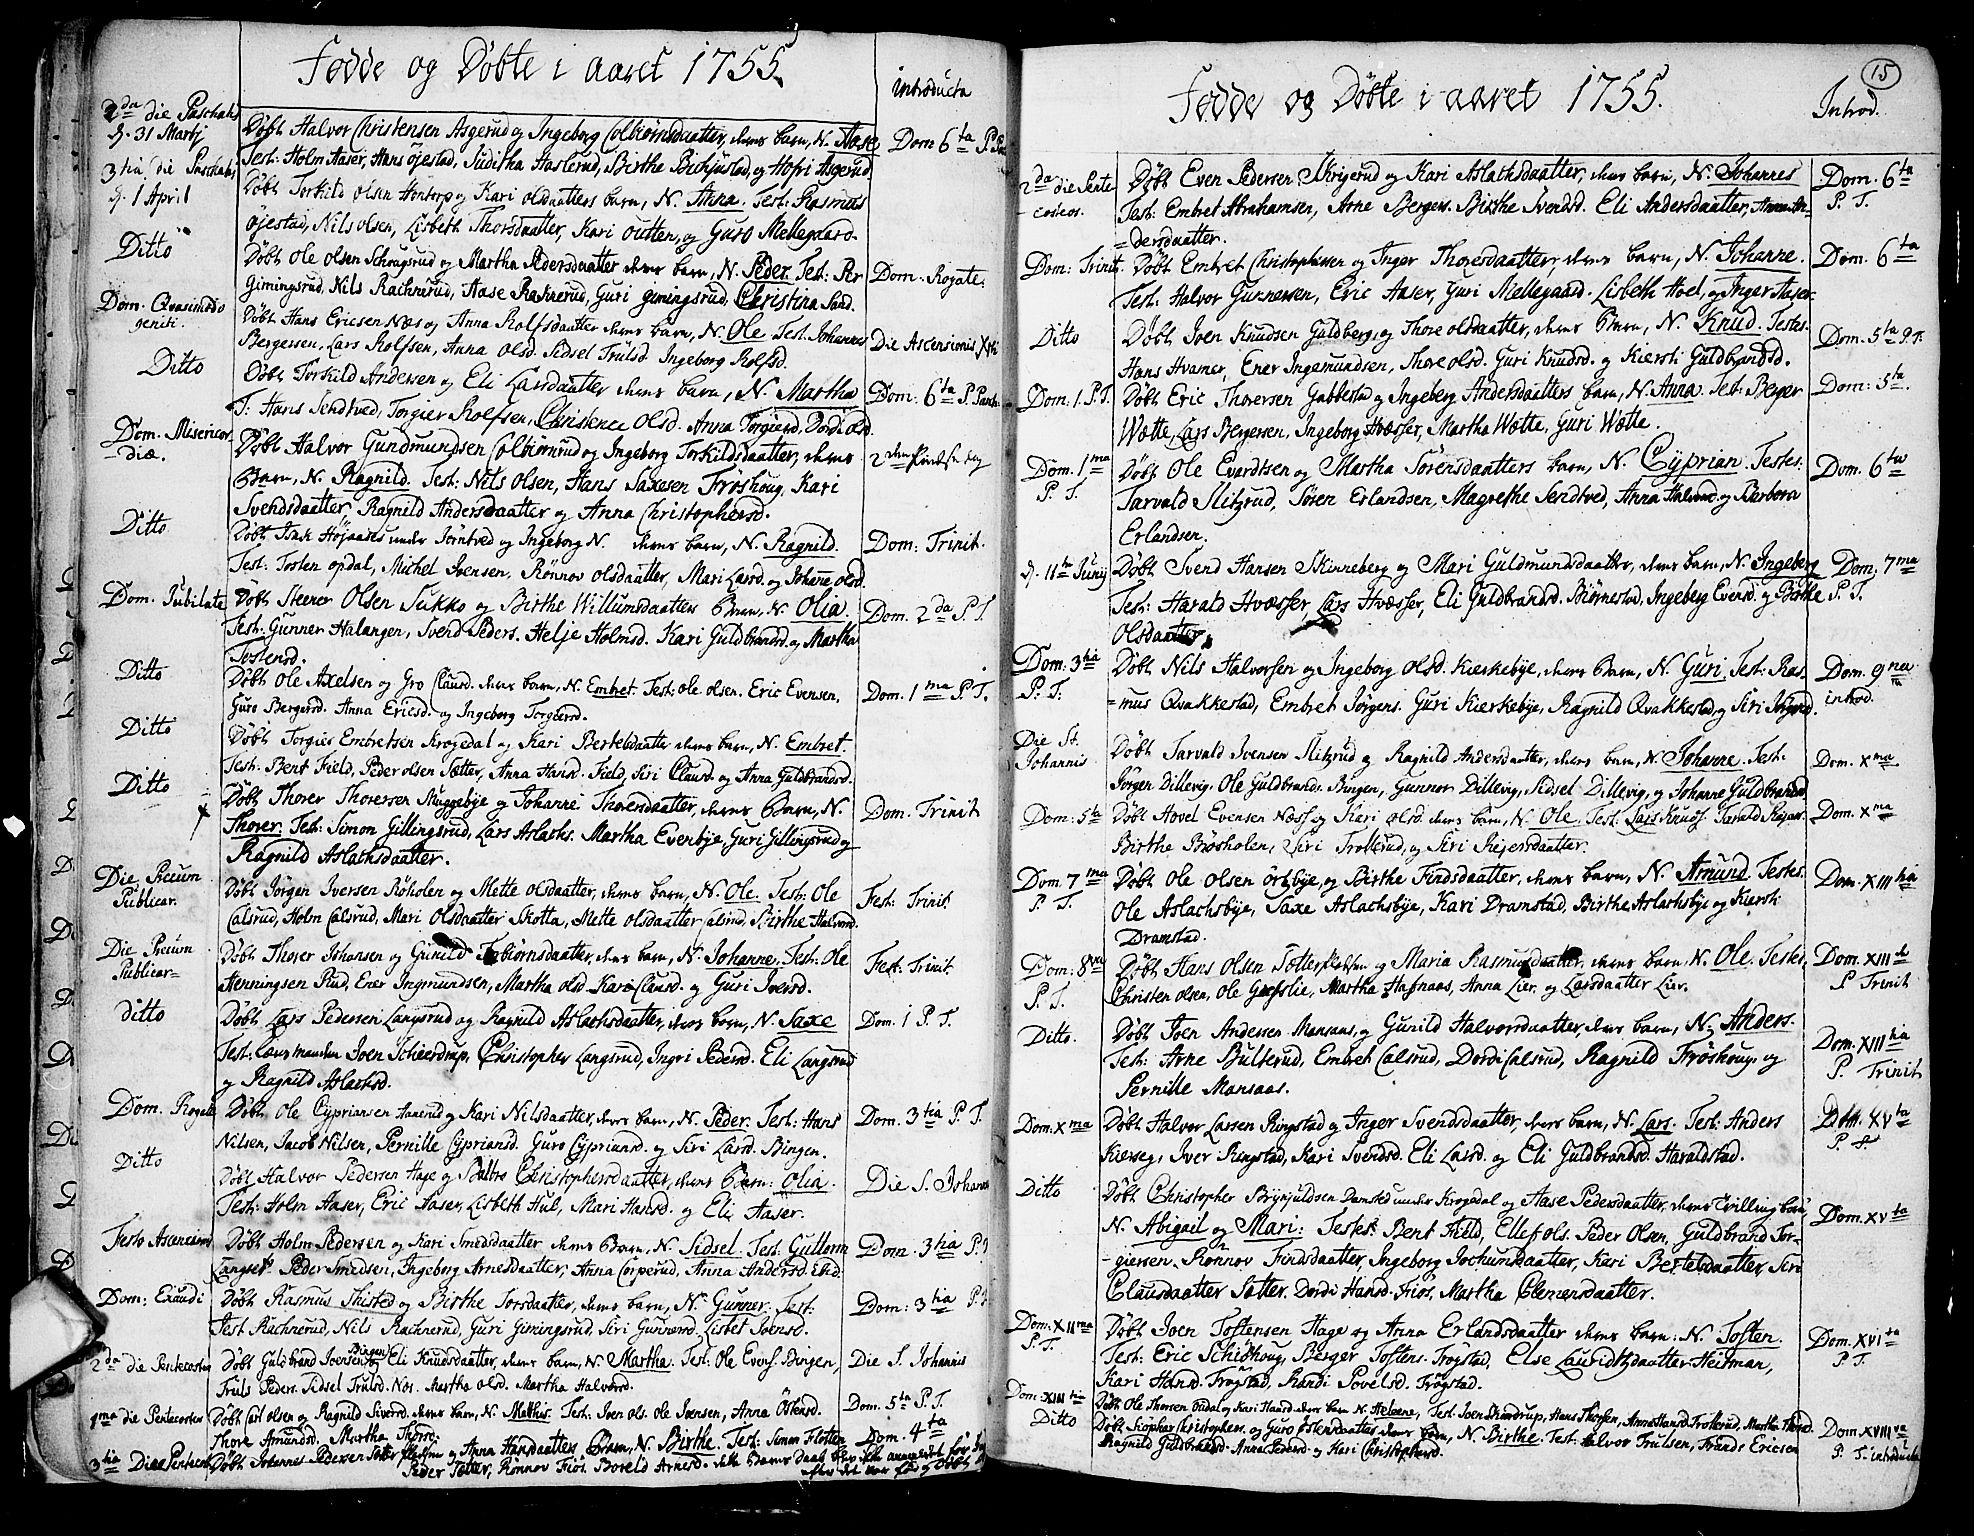 Fødde og Døbte i aaret 1755.
introducta
2da die Paschatis
d. 31 Martij
Døbt Halvor Christensen Asgerud og Ingeborg Colbiørnsdaatter, deres barn, N. Aase,
Dom 6ta P.
Test: Holm Aaser, Hans Øjestad, Juditha Haslerud, Birthe Birkjustad, og Asgerud
3tia die Paschatis
d. 1 April
Døbt Torkild Olsen Hontorp og Kari Olsdaatters barn, N. Anna. Test: Rasmus
Øjestad, Nils Olsen, Lisbeth Thorsdaatter, Kari Outten, og Guro Mellegaard.
Ditto
Døbt Ole Olsen Schougsrud og Martha Pedersdaatter deres barn, N. Peder. Test: Per
Dom. Rogate.
Gimingsrud, Nils Rachnerud, Aase Rachnerud, Guri Gimingsrud, Christina Sand.
Dom. Qvasimodo
geniti.
Døbt Hans Ericsen Næs og Anna Rolfsdaatter deres barn, N. Ole Test. Johannes
Bergersen, Lars Rolfsen, Anna Olsd. Sidsel Trulsd Ingeborg Rolfsd.
Die Ascensionis Xsti
Ditto
Døbt Torkild Andersen og Eli Larsdaatter deres barn, N. Martha
Dom: 6ta P. Pasch.
T: Hans Sendtved, Torgier Rolfsen, Christence Olsd. Anna Torgiersd, Dordi Olsd.
Dom. Misericor-
diæ.
Døbt Halvor Gundmundsen Colbiørnrud og Ingeborg Torkildsdaatter, deres
2den Pindse dag
Barn, N. Ragnild. Test: Nils Olsen, Hans Saxesen Frøshoug, Kari
Svendsdaatter, Ragnild Andersdaatter og Anna Christophersd.
Ditto
Døbt Isak Højaasen under Jørntved og Ingeborg N. deres barn, N. Ragnild.
Dom: Trinit.
Test: Tosten Opdal, Michel Joensen, Rønnov Olsdaatter, Mari Larsd. og Johanne Olsd.
Dom. Jubilate
Døbt Steener Olsen Sukko og Birthe Willumsdaatters Barn, N. Olia.
Dom. 2da P. T.
Test: Gunner Halangen, Svend Peders. Helje Holmsd. Kari Guldbrandsd. og Martha
Tostensd.
Ditto
Døbt Ole Axelsen og Gro Clausd. deres barn, N. Embret. Test: Ole Olsen. Eric Evensen,
Dom. 1ma P. T.
Guro Bergersd. Anna Ericsd. og Ingeborg Torgiersd.
Ditto
Døbt Torgies Embretsen Krogedal og Kari Bertelsdaatter deres barn, N. Embret.
Test: Bent Field, Peder Olsen Sætter, Anna Hansd. Field, Siri Clausd. og Anna Guldbrandsd.
Ditto
Døbt Thorer Thoresen Muggebye og Johanne Thoresdaatter, deres Barn, N.
Dom. Trinit
Thorer. Test: Simon Gillingsrud, Lars Aslachs. Martha Evenbye, Guri Gillingsrud og
Ragnild Aslachsdaatter.
Die Precum
Publicar.
Døbt Jørgen Iversen Røholen og Mette Olsdaatter, deres barn, N. Ole. Test: Ole
Fest: Trinit.
Calsrud, Holm Calsrud, Mari Olsdaatter Skotta, Mette Olsdaatter Calsrud, Birthe Halvorsd.
Die Precum
Publicar-
Døbt Thorer Johansen og Gunild Torbiørnsdaatter, deres barn, N. Johanne. Test: Ole
Fest: Trinit
Henningsen Rud, Ener Ingmundsen, Martha Olsd. Kari Clausd. og Guri Iversd.
ditto
Døbt Lars Pedersen Langsrud og Ragnild Aslachsdaatter, deres barn, N. Saxe
Dom. 1 P. T.
Test: Lænsmanden Joen Schierdrup, Christopher Langsrud, Ingri Pedersd. Eli Langsrud
og Ragnild Aslachsd.
Dom. Rogate
Døbt Ole Cypriansen Aanerud og Kari Nilsdaatter, deres barn, N. Peder. Test: Hans
Dom. 3tia P. T.
Nilsen, Jacob Nilsen, Pernille Cypriansd. Guro Cypriansd. og Siri Larsd. Bingen.
Ditto
Døbt Halvor Pedersen Hage og Christophersdaatter, deres Barn: Olia.
Die S. Johannis
Test: Holm Aaser, Eric Aaser, Lisbeth Hul, Mari Hansd. og Eli Aaser.
Festo Ascensionis
Døbt Holm Pedersen og Kari Smedsdaatter deres Barn, N. Sidsel. Test. Guttorm
Dom. 3tia P. T
Langset. Peder Smedsen, Ingeborg Arnesdaatter, Anna Corperud, Anna Andersd.
Dom: Exaudi
Døbt Rasmus Thisted og Birthe Torsdaatter, deres barn, N. Gunner. Test:
Dom: 3tia P. T
Test Rachnerud, Nils Rachnerud, Guri Gimingsrud, Siri Gunnersd. Lisbet Joensd.
2da die Pentecostes
Døbt Guldbrand Joensen Bingen og Eli Knudsdaatter, deres barn, N. Martha. Test. Ole Evens. Bingen,
Die S. Johannis
Truls Peders. Sidsel Trulsd. Nos. Martha Olsd. Martha Halvorsd.
1ma die Pentecostes
Døbt Carl Olsen og Ragnild Siversd. deres barn, N. Matthis. Test. Joen Ols. Ole Joensen, Anna Østensd.
Dom. 5ta P. T.
Thore Amundsd. Martha Thorsd.
3tia Die Pentecost
Døbt Johannes Pedersen Sæter og Anna Hansdaatters Barn, N. Birthe. Test. Simon Flotten
Dom. 4ta
Peder Sætter, Rønnov Fiøs. Borelid Arnesd. dette Barns Daab blev ikke annoteret før
efter det var

15
Fødde og Døbte i aaret 1755.
Introd.
2da die Pente-
costes.
Døbt Even Pedersen Skrigerud og Kari Aslachsdaatter, deres barn, N. Johannes
Dom. 6ta
P. T.
Test: Embret Abrahamsen, Arne Bergers. Birthe Svendsd. Eli Andersdaatter, Anna An-
dersdaatter.
Dom: Trinit.
Døbt Embret Christophersen og Inger Thoresdaatter, deres barn, N. Johanne.
Dom. 6ta
Test: Halvor Gunnersen, Eric Aaser, Guri Mellegaard. Lisbeth Hoel, og Inger Aaser.
Ditto
Døbt Joen Knudsen Guldberg, og Thore Olsdaatter, deres Barn, N. Knud. Testes.
Dom. 5ta P. T.
Hans Hvamer, Ener Ingemundsen, Thore Olsd. Guri Knudsd. og Kiersti Guldbrandsd.
Dom: 1. P. T.
Døbt Eric Thoresen Gabbestad og Ingeborg Andersdaatters barn, N. Anna. Test: Berger
Dom: 5ta.
Wætte, Lars Bergersen, Ingeborg Hvæsser, Martha Wætte, Guri Wætte.
Dom. 1ma
P. T.
Døbt Ole Evardtsen og Martha Sørensdaatters barn, N. Cyprian. Testes.
Dom. 6ta
Tarvald Slitzrud, Søren Erlandsen, Magrethe Sendtved, Anna Halvorsd og Barbora
Erlandsen.
d. 11te Junij
Døbt Svend Hansen Skinneberg og Mari Guldmundsdaatter, deres barn, N. Ingeborg
Dom: 7ma
P. T.
Test: Harald Hvæsser, Lars Hvæsser, Eli Guldbrandsd. Biørnestad, Ingeborg Evensd. og Birthe
Olsdaatter.
Dom: 3tia
P. T.
Døbt Nils Halvorsen og Ingeborg Olsd. Kierkebye, deres Barn, N. Guri. Test: Ras-
Dom. 9na
introd.
mus Qvakkestad, Embret Jørgens. Guri Kierkebye, Ragnild Qvakkestad og Siri Jørgensd.
Die St.
Johannis
Døbt Tarvald Ivensen Slitzrud og Ragnild Andersdaatter, deres barn, N. Johanne. Test.
Dom. Xma.
Jørgen Dillevig. Ole Guldbrands. Bingen, Gunnor Dillevig, Sidsel Dillevig, og Johanne Guldbrandsd.
Dom: 5ta
Døbt Hovel Evensen Næss og Kari Olsd. deres barn, N. Ole. Test. Lars Knuds. Tarald
Dom. Xma
Birthe Brøsholen, Siri Trotterud, og Siri Rejersdaatter.
Dom 7ma
P. T.
Døbt Ole Olsen Ørtbye, og Birthe Findsdaatter, deres barn, N. Amund. Testes.
Dom. XIIItia
Ole Aslachsbye, Saxe Aslachsbye, Kari Dramstad, Birthe Aslachsbye og Kiersti
Dramstad.
Dom: 8va
P. T.
Døbt Hans Olsen og Maria Rasmusdaatter, deres barn, N. Ole. Testes.
Dom. XIIItia
P Trinit
Christen Olsen, Ole Gufslie, Martha Hafnaas, Anna Lier, og Larsdaatter Lier.
Ditto.
Døbt Joen Andersen Mansaas, og Gunild Halvorsdaatter, deres barn, N. Anders.
Dom. XIIItia
P. Trinit
Test: Arne Bulterud, Embret Calsrud, Dordi Calsrud, Ragnild Frøshoug, og
Pernille Mansaas.
Dom. Xma
Døbt Halvor Larsen Ringstad og Inger Svendsdaatter, deres barn, N. Lars. Test: Anders
Dom. XVta
P. T
Kierseg, Iver Ringstad, Kari Svendsd. Eli Larsd. og Eli Guldbrandsd. Haraldstad.
Ditto
Døbt Christopher Brynjuldsen Damsted under Krogedal og Aase Pedersdaatter, deres Tvilling børn,
N. Abigail og Mari: Testes. Bent Field, Ellef Ols. Peder Olsen, Guldbrand Tor-
Dom. XVta
giersen. Rønnov Findsdaatter, Ingeborg Jochumsdaatter, Kari Bertelsdaatter, Siri
Clausdaatter Sætter. Dordi Hansd. Fiøs, Martha Clemensdaatter.
Dom. XIIma
P. T.
Døbt Joen Tostensen Hage og Anna Erlandsdaatter deres barn: N. Tosten.
Dom. XVIta
P. T.
Test: Eric Schiøhoug, Berger Tostens. Frøgstad, Else Lauridtzdaatter Heidman,
Kari Hansd. Frøgstad, Randi Povelsd. Frøgstad.
Dom. XIIItia
Døbt Ole Thorsen Opdal og Kari Haardsd. deres barn N. Helvene, Test. Joen Skindrup, Hans Thorsen, Anne Hansd. Trotterud, Martha Thorsd.
Ditto
Døbt Siopher Christophers. og Guro Østensdaatter, deres barn, N. Birthe. Test. Halvor Trulsen, Trunds Ericsen
Dom XVIIIva
P. T. introducta
Ragnild Guldbrandsd. Anna Pedersd. og Kari Christophersd.